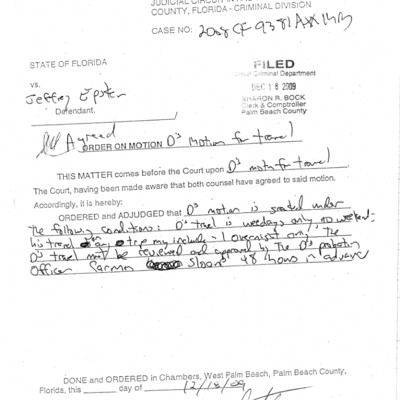 JUDICIAL CIRCUIT IN
COUNTY, FLORIDA - CRIMINAL DIVISION
CASE NO: 2008 CF 9381 AXX MB
STATE OF FLORIDA
vs.
Jeffrey Epstein
Defendant.
FILED
Circuit Criminal Department
DEC 18 2009
SHARON R. BOCK
Clerk & Comptroller
Palm Beach County
Agreed
ORDER ON MOTION D's Motion for travel
THIS MATTER comes before the Court upon D's motn for travel
The Court, having been made aware that both counsel have agreed to said motion.
Accordingly, it is hereby:
ORDERED and ADJUDGED that D's motion is granted under
the following conditions: D's travel is weekdays only no weekend.
his travel on any trip may include 1 overnight only. The
D's travel must be reviewed and approved by The D's probation
Officer Carmen Sloan 48 hours in advance
DONE and ORDERED in Chambers, West Palm Beach, Palm Beach County,
Florida, this day of 12/18/09